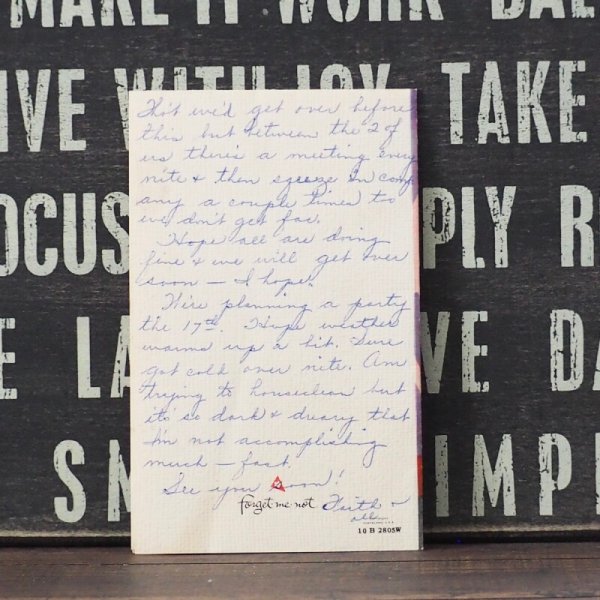 MAKE IT WORK DAL
IVE WITH JOY TAKE
OCUS PLY R
E LA VE DA
SM IMPL
Tho't we'd get over before
this but between the 2 of
us there's a meeting every
nite & then sqeeze in comp
any a couple times too
we don't get far.
Hope all are doing
fine & we will get over
soon – I hope.
We're planning a party
the 17th. Hope weather
warms up a bit. Sure
got cold over nite. Am
trying to houseclean but
it's so dark & dreary that
I'm not accomplishing
much – fast.
See you soon!
forget me not Faith &
all
10 B 2805W